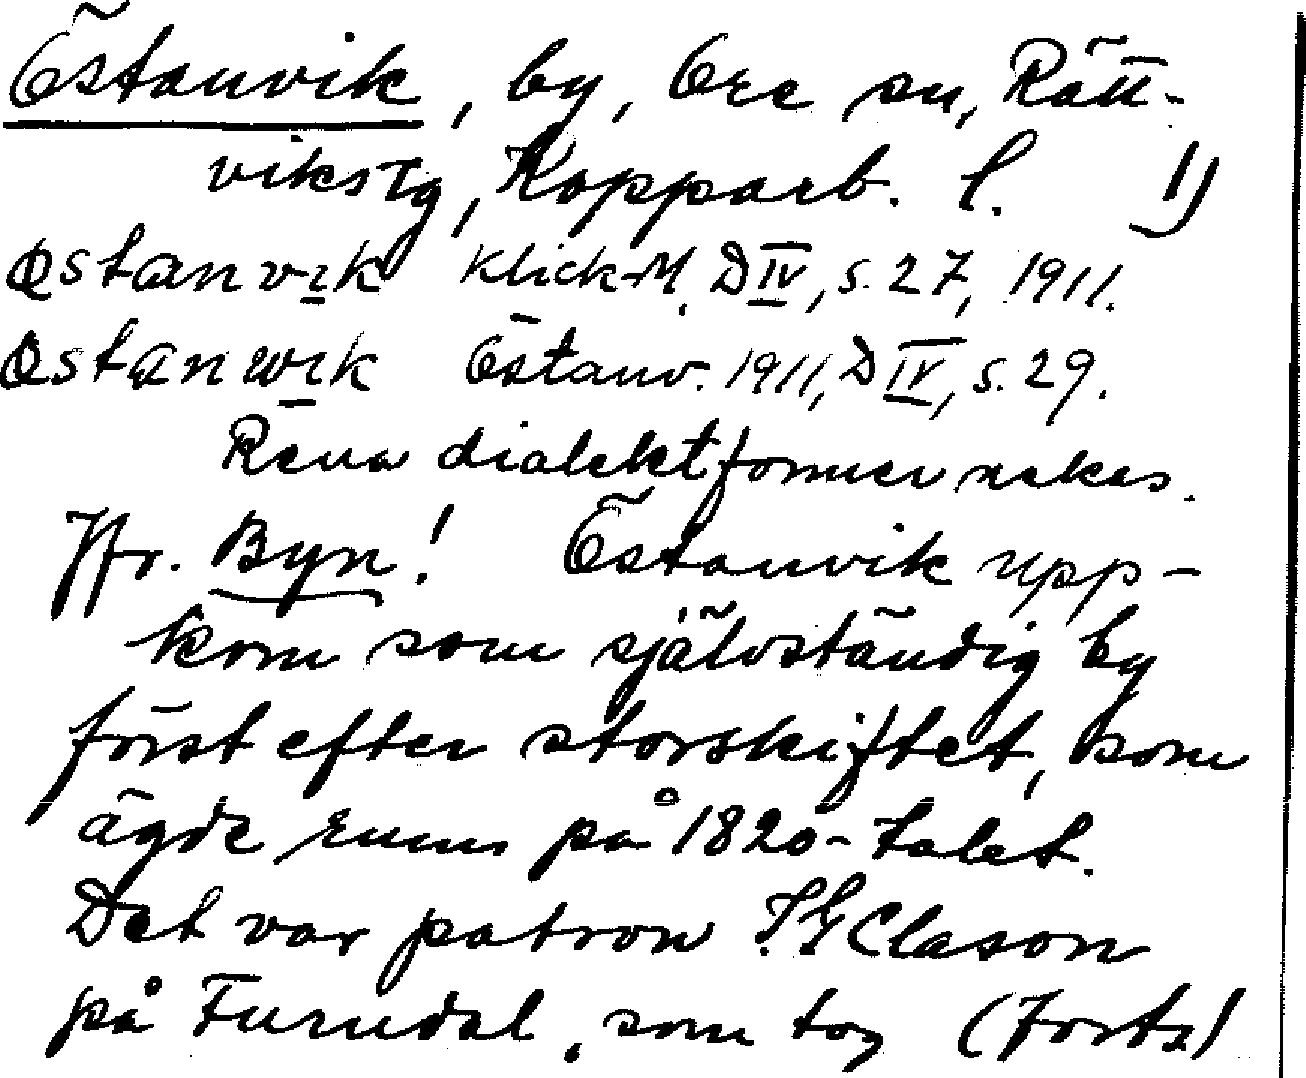 Östanvik, by, Ore sn, Rätt-
vikstg, Kopparb. l. 1)
Qstanvik Klick-M. D IV, s. 27, 1911.
Qstanwik Östanv. 1911, D IV, s. 29.
Rena dialektformer saknas.
Jfr. Byn! Östanvik upp-
kom som självständig by
först efter storskiftet, som
ägde rum på 1820-talet.
Det var patron J.G Clason
på Furudal, som tog (Forts)